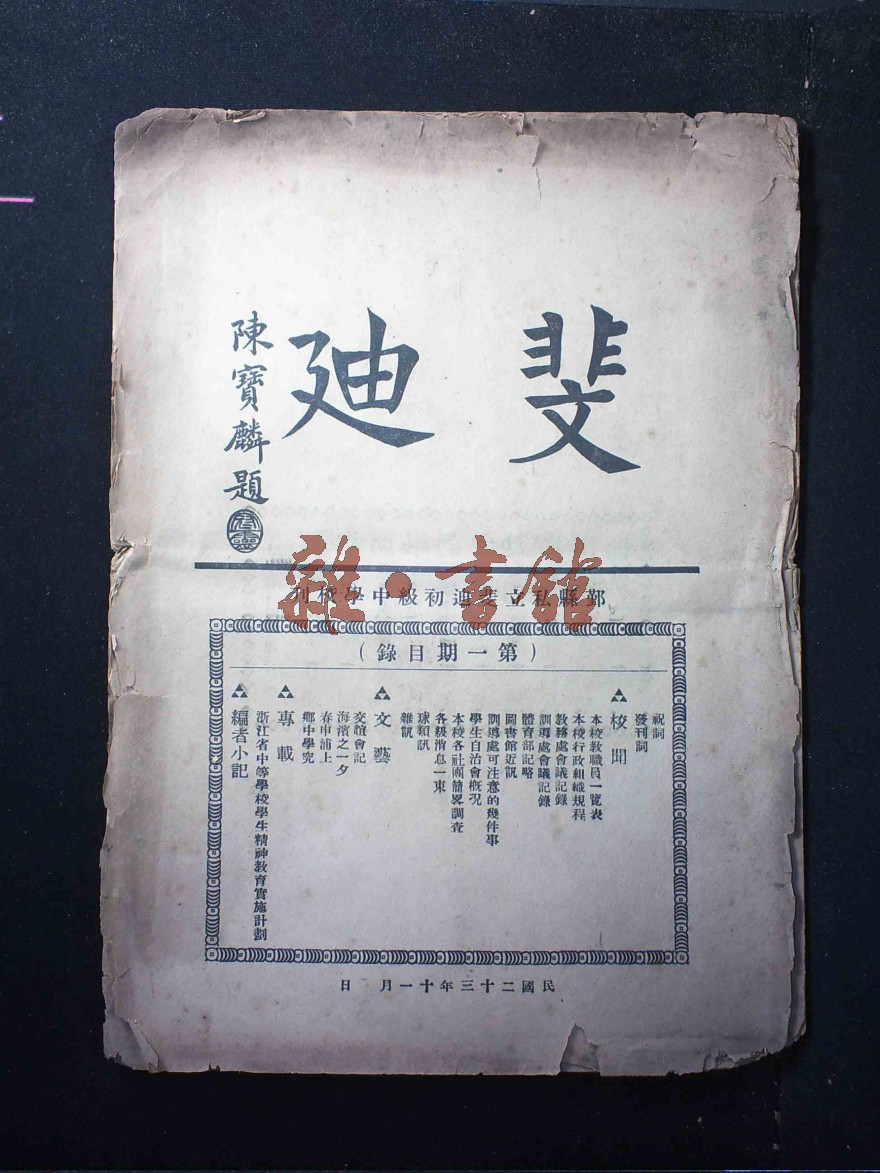 斐迪
陳寶麟題
雜·書館
鄞縣私立斐迪初級中學校刊
（第一期目錄）
祝詞
發刊詞
校聞
本校教職員一覽表
本校行政組織規程
教務處會議記錄
訓導處會議記錄
體育部記略
圖書館近訊
訓導處可注意的幾件事
學生自治會概况
本校各社團簡畧調查
各級消息一束
球類訊
雜訊
文藝
交誼會記
海濱之一夕
春申浦上
鄉中學究
專載
浙江省中等學校學生精神教育實施計劃
編者小記
民國二十三年十一月 日